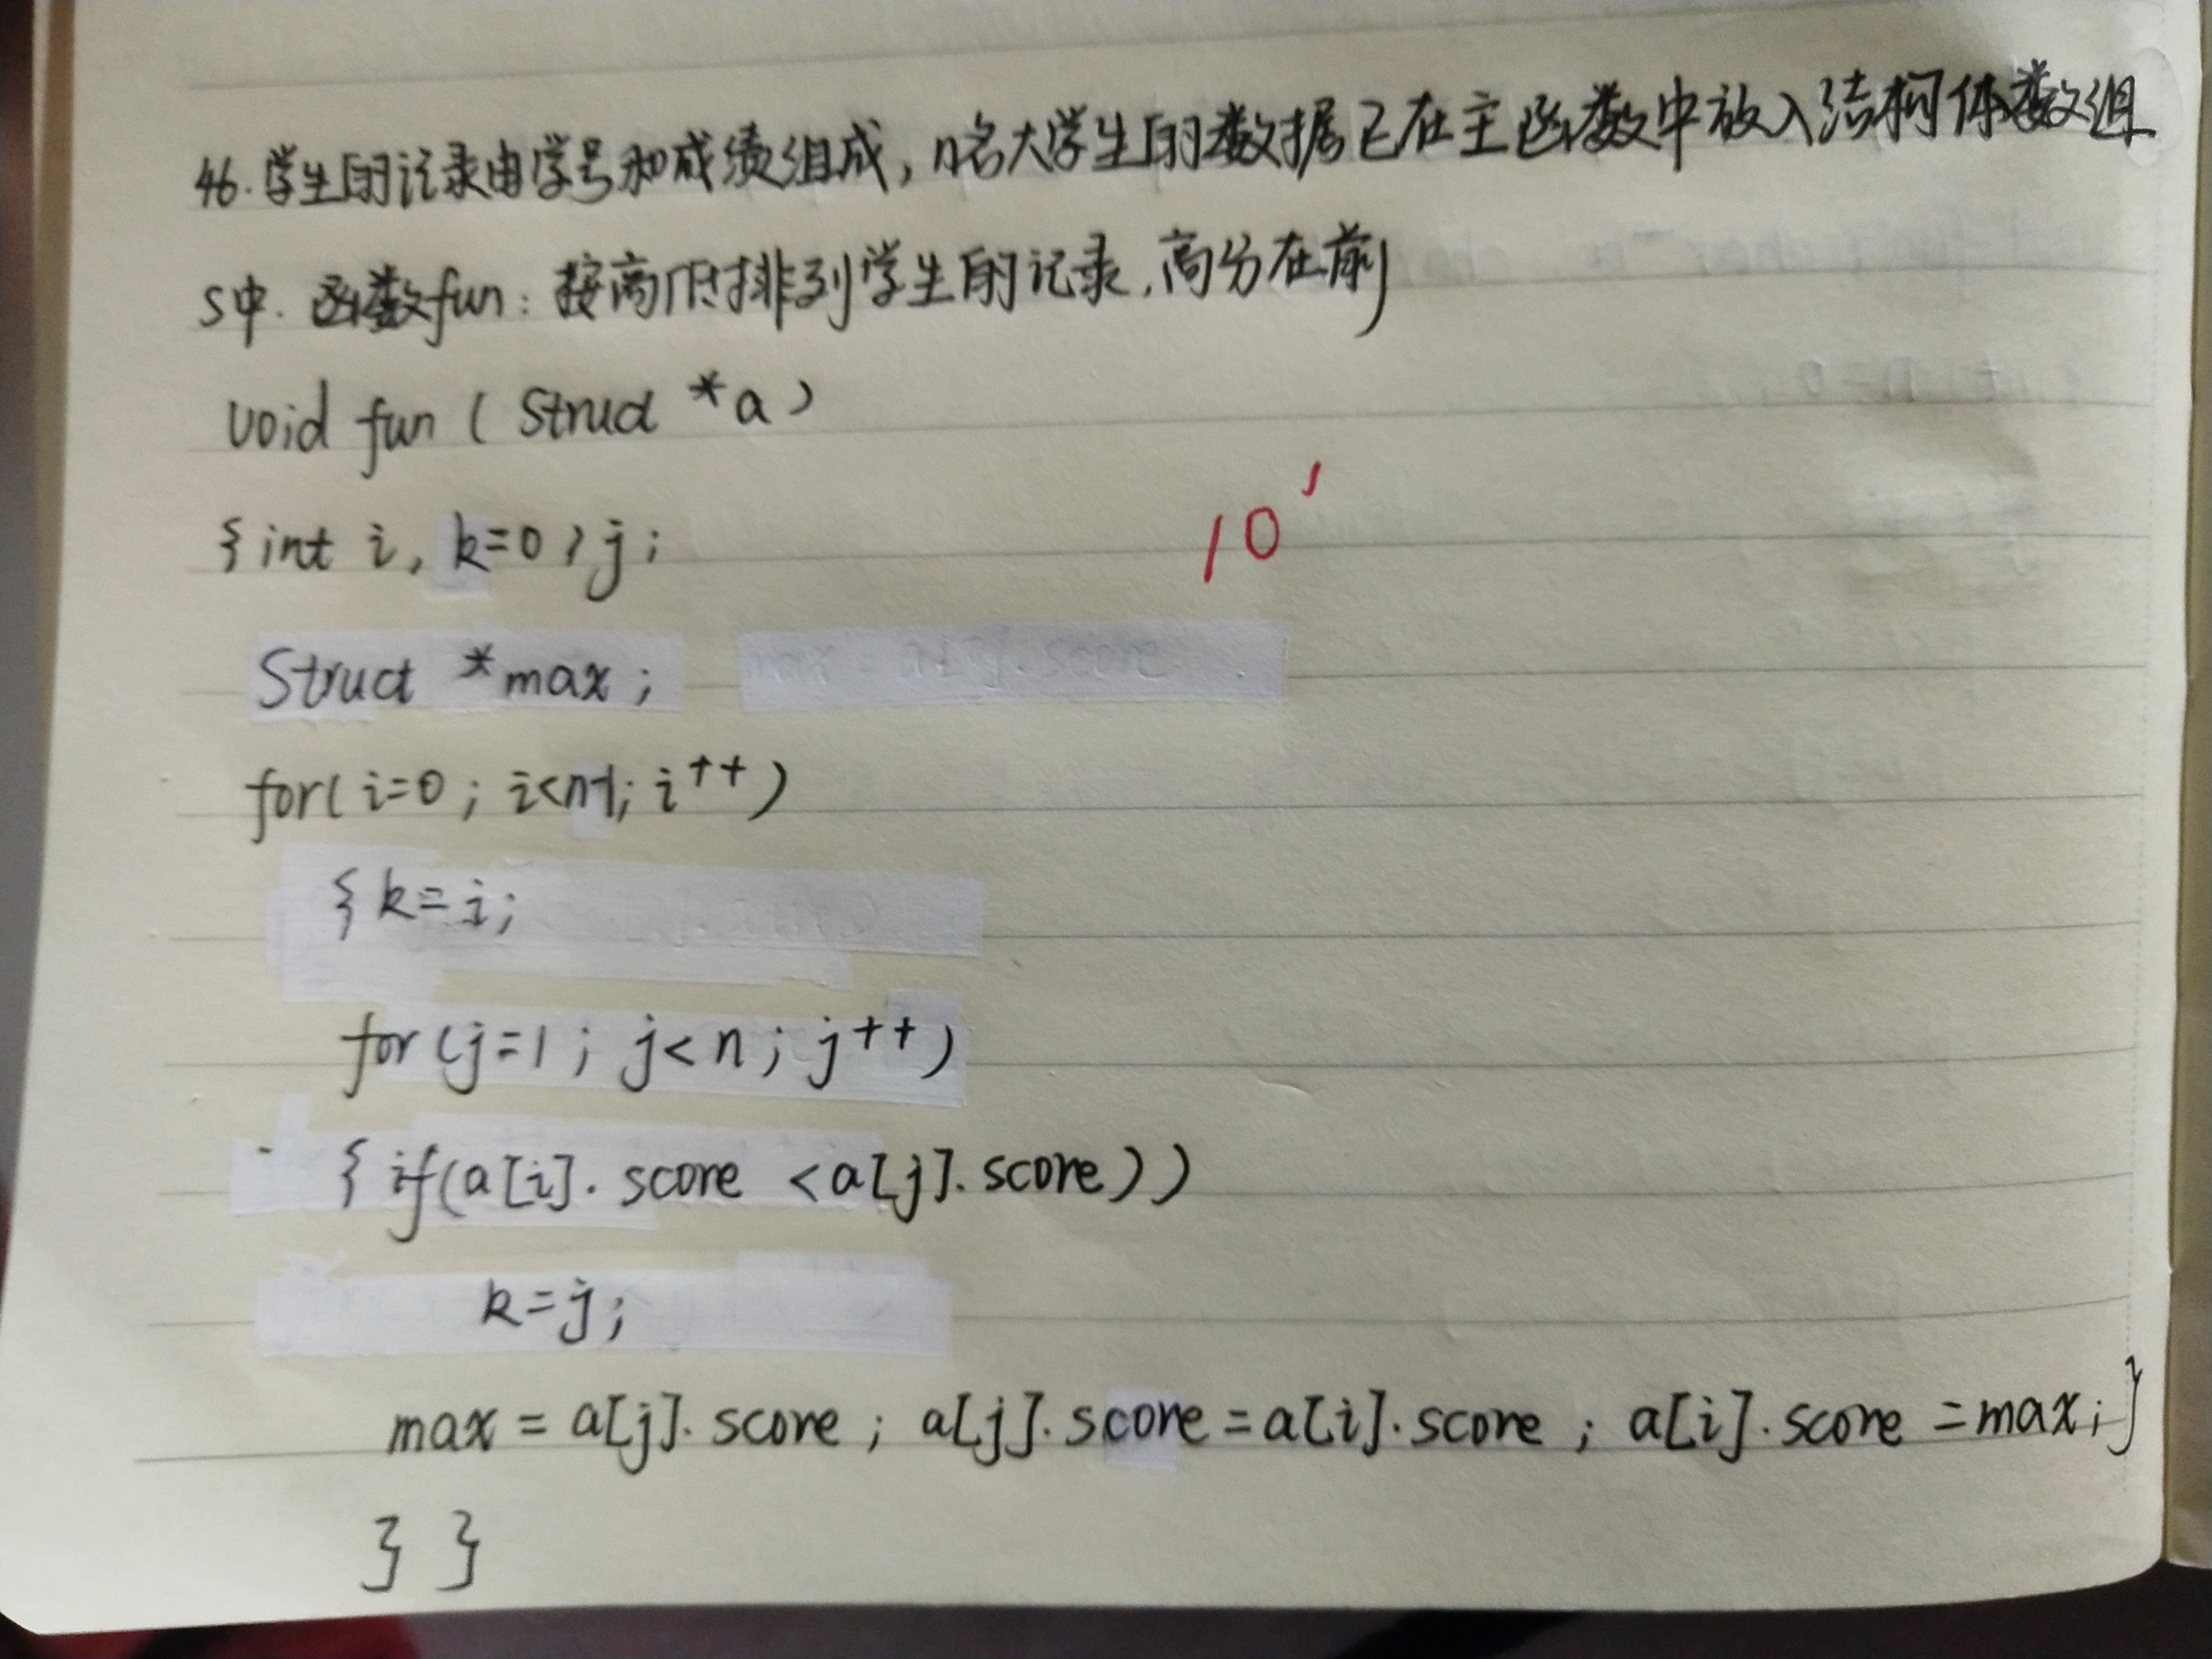 46.学生的记录由学号和成绩组成,n名大学生的数据已在主函数中放入结构体数组
S中. 函数fun: 按高低排列学生的记录,高分在前
void fun ( Struct *a )
10'
{int i, k=0, j;
Struct *max;
for( i=0 ; i<n-1; i++ )
{ k=i;
for (j=1 ; j<n ; j++)
{ if(a[i]. score <a[j]. score))
k=j;
max = a[j]. score ; a[j]. score = a[i]. score ; a[i]. score =max;}
} }